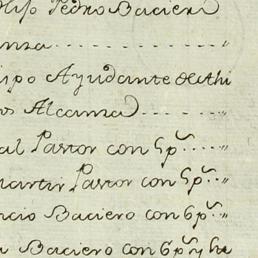 Hijo Pedro Baciero
anza.......... "
ipo Ayudante de Athi
os Alcanza) ..... "
al Pastor con 5 p.s.. "
martin Pastor con 5 p.s.. "
ncio Baciero con 6 p.s.. "
Baciero con 6 p.s y he